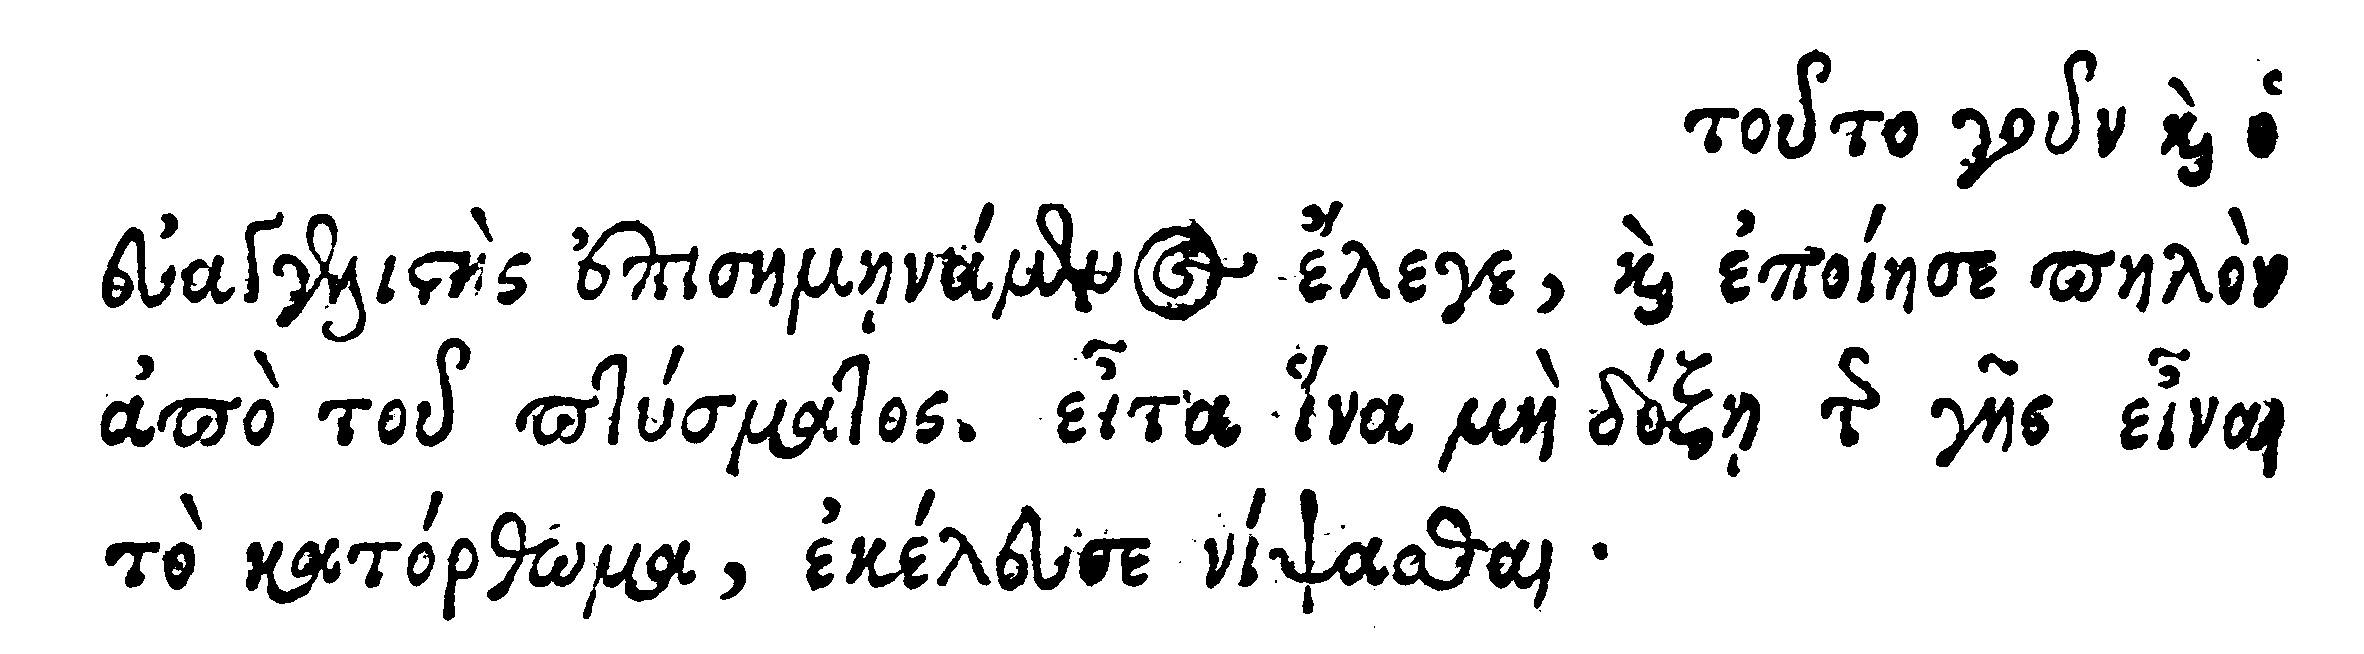 τοῦτο γοῦν καὶ ὁ
εὐαγγελιστὴς ἐπισημῃνάμενος ἔλεγε, καὶ ἐποίησε πηλὸν
ἀπὸ τοῦ πτύσματος. εἶτα ἵνα μὴ δόξῃ τῆς γῆς εἶναι
τὸ κατόρθωμα, ἐκέλευσε νίψασθαι.